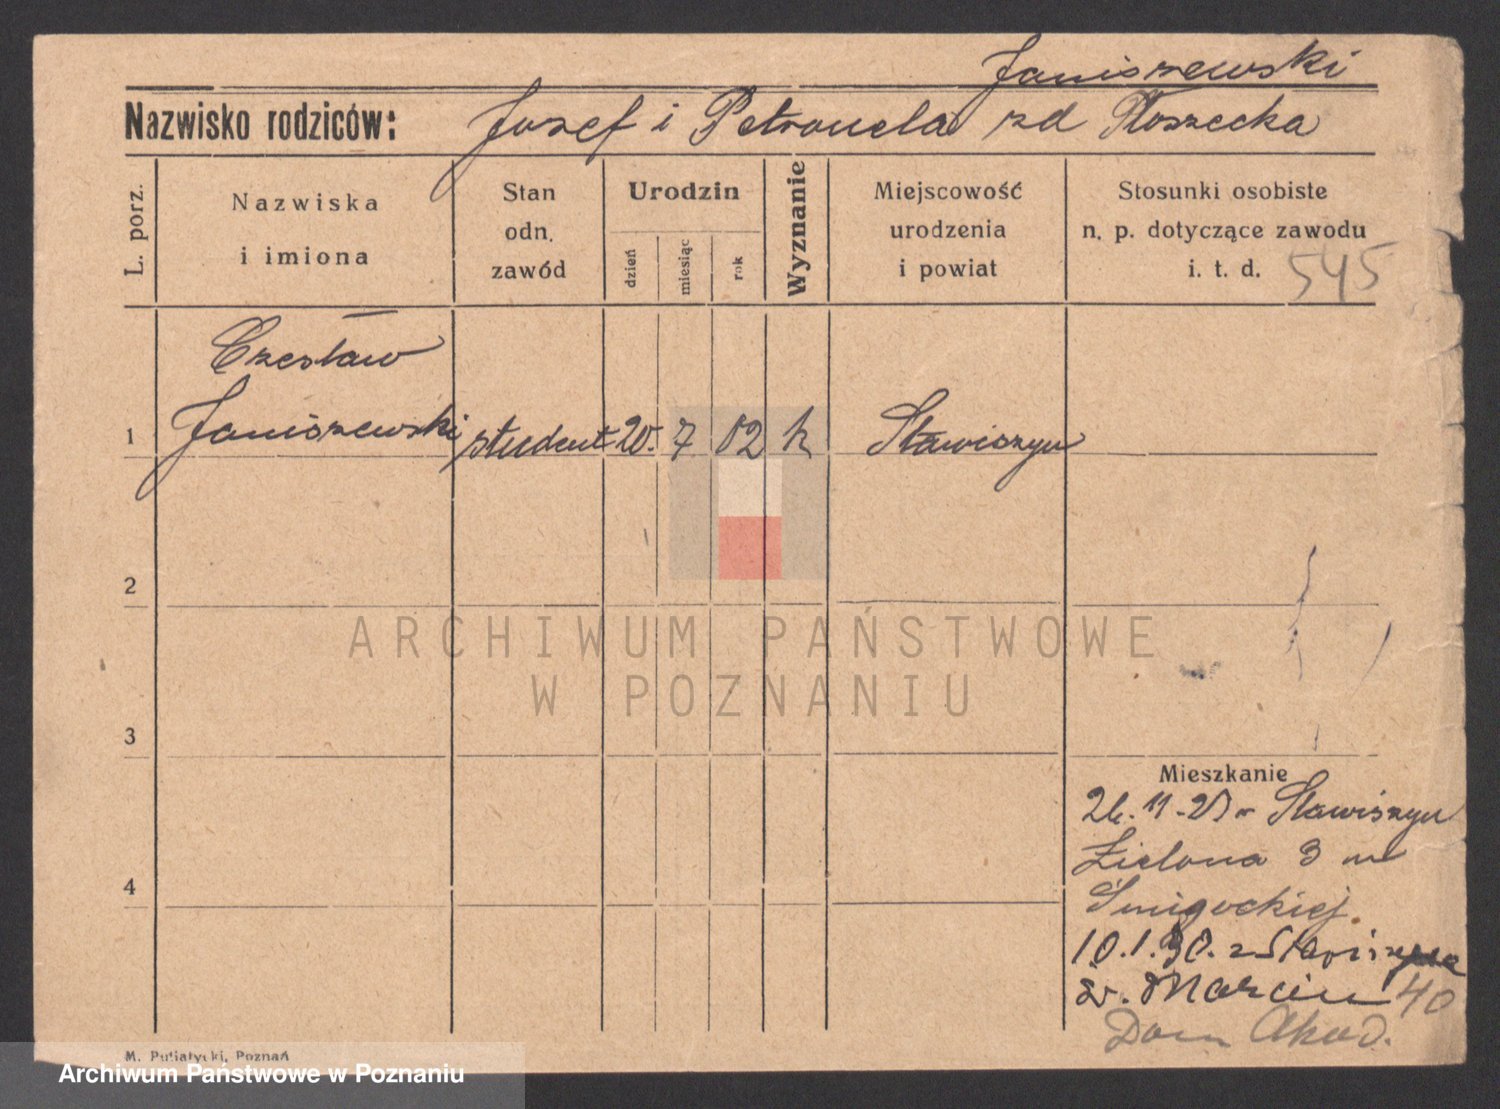 Janiszewski
Nazwisko rodziców: Josef i Petronela zd Płoszecka
L. porz.
Nazwiska i imiona
Stan odn. zawód
Urodzin
dzień
miesiąc
rok
Wyznanie
Miejscowość urodzenia i powiat
Stosunki osobiste n. p. dotyczące zawodu i. t. d.
545
Czesław
1 Janiszewski student 20. 7 02 k Stawiszyn
2
3
4
Mieszkanie
Stawiszyn
Zielona 3 m
Śmigockiej.
10.1.30. z
św. Marcin 40
Dom Akad.
M. Putiatycki, Poznań
ARCHIWUM PAŃSTWOWE
W POZNANIU
Archiwum Państwowe w Poznaniu